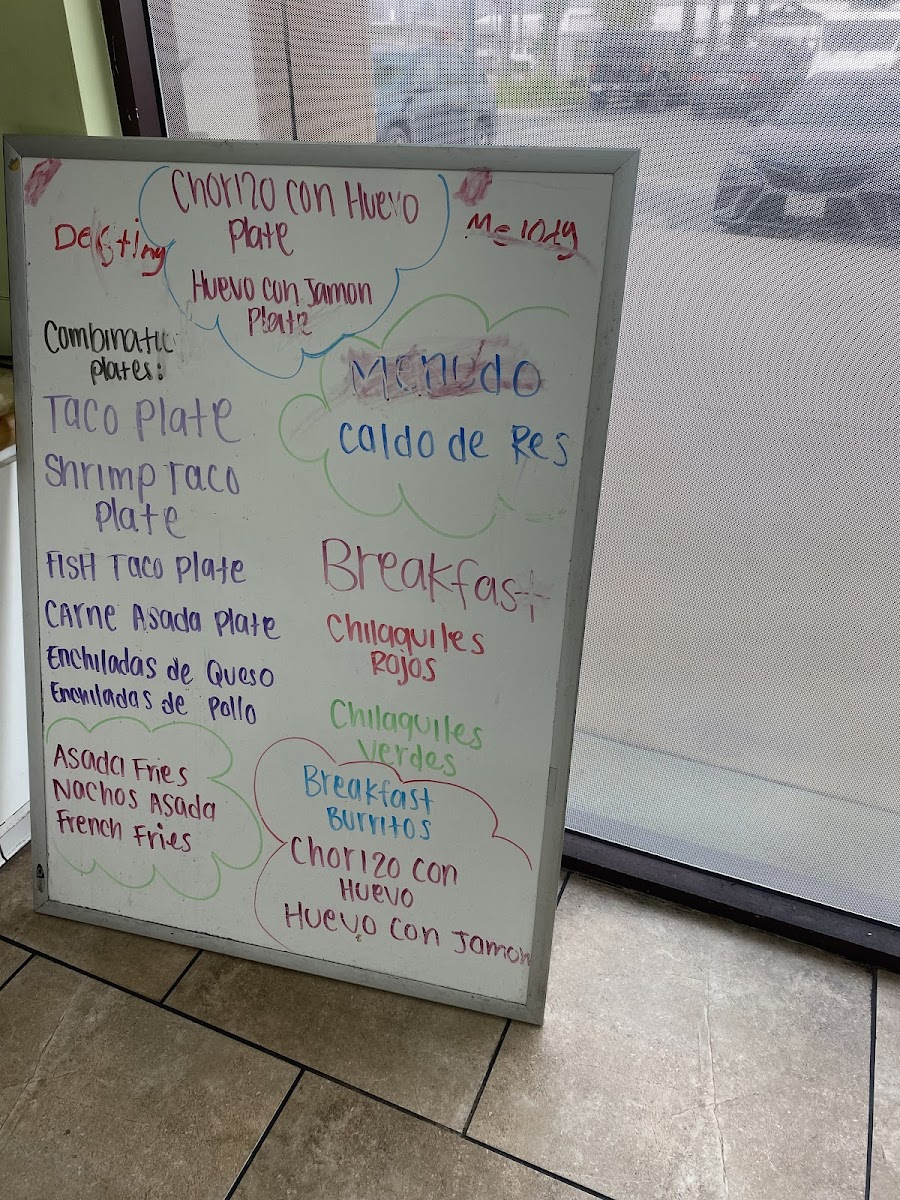 Chorizo con Huevo
Plate
Huevo con Jamon
Plate
Destiny
Melody
Combinatic
plates:
Taco Plate
Shrimp Taco
Plate
Fish Taco Plate
Carne Asada Plate
Enchiladas de Queso
Enchiladas de Pollo
Asada Fries
Nachos Asada
French Fries
Menudo
Caldo de Res
Breakfast
Chilaquiles
Rojos
Chilaquiles
Verdes
Breakfast
Burritos
Chorizo con
Huevo
Huevo con Jamon